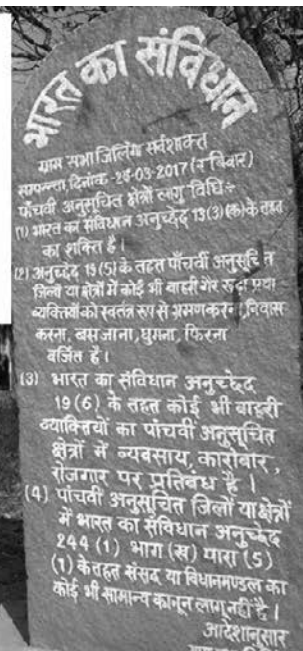 भारत का संविधान
ग्राम सभा जिलिंगा सर्वशक्त
सम्पन्न, दिनांक -26-03-2017 (रविवार)
पाँचवी अनुसूचित क्षेत्रों लागु विधि ÷
(1) भारत का संविधान अनुच्छेद 13(3)(क) के तहत
का शक्ति है।
(2) अनुच्छेद 19(5) के तहत पाँचवी अनुसूचित
जिलों या क्षेत्रों में कोई भी बाहरी गैर रूढ़ा प्रथा
व्यक्तियों को स्वतंत्र रूप से भ्रमण करना, निवास
करना, बस जाना, घुमना, फिरना
वर्जित है।
(3) भारत का संविधान अनुच्छेद
19 (6) के तहत कोई भी बाहरी
व्याक्तियों का पांचवीं अनुसूचित
क्षेत्रों में व्यवसाय, कारोबार,
रोजगार पर प्रतिबंध है।
(4) पांचवीं अनुसूचित जिलों या क्षेत्रों
में भारत का संविधान अनुच्छेद
244 (1) भाग (ख) धारा (5)
(1) के तहत संसद या विधानमण्डल का
कोई भी सामान्य कानून लागू नहीं है।
आदेशानुसार